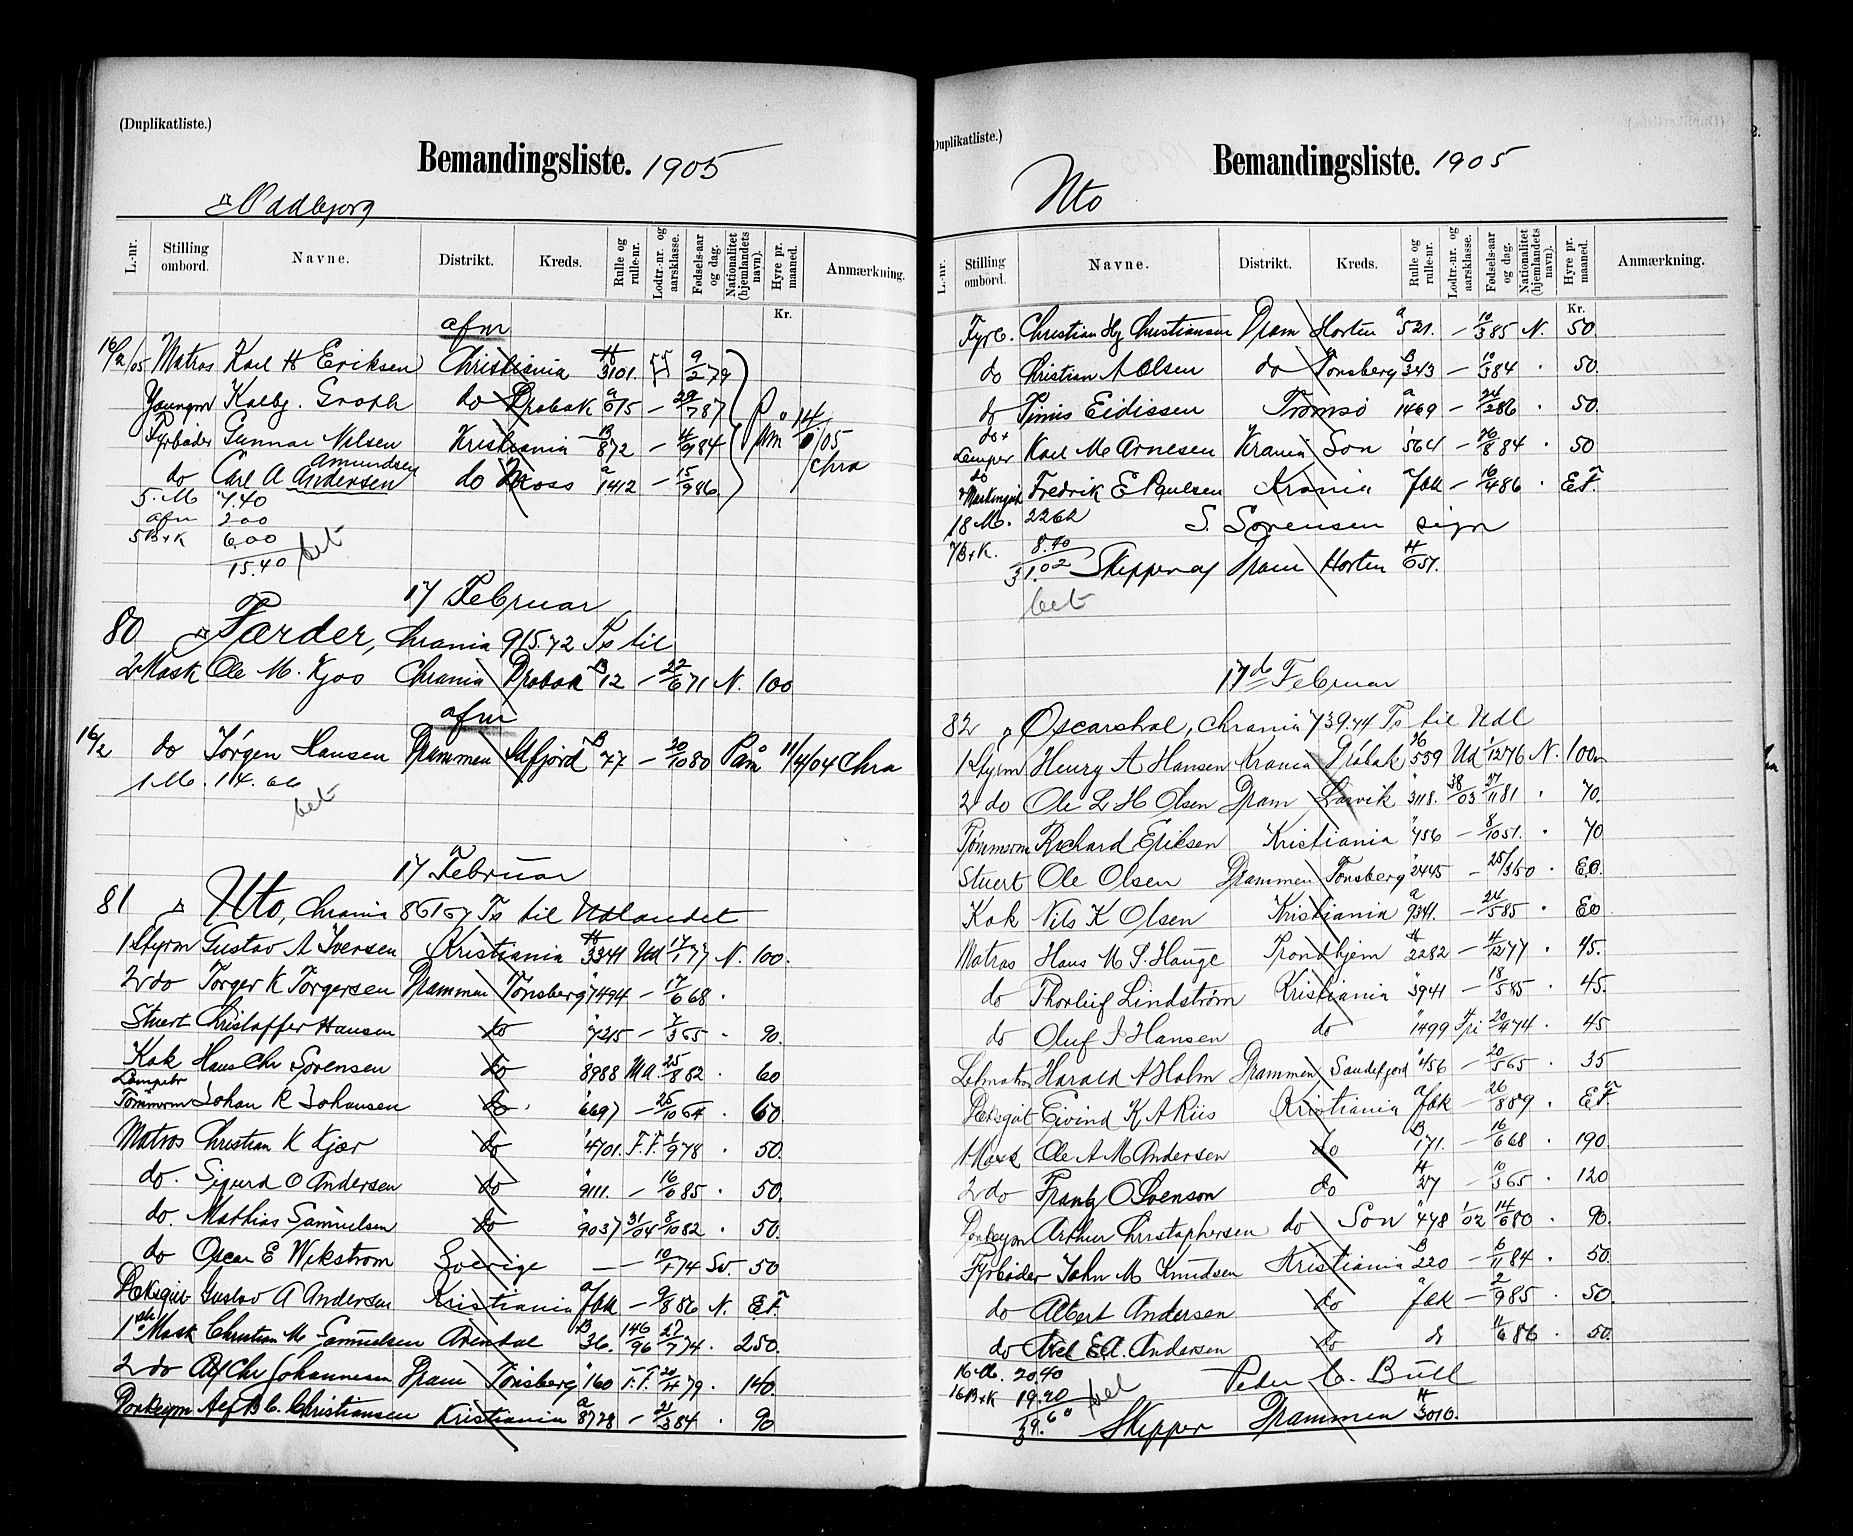 (Duplikatliste.)
Bemandingsliste. 1905
Oddbjørg
L.-nr. Stilling ombord. Navne. Distrikt. Kreds. Rulle og rulle-nr. Lodtr.-nr. og aarsklasse. Fødsels-aar og dag. Nationalitet (hjemlandets navn). Hyre pr. maaned. Anmærkning.
Kr.
afm
16/2/05 Matros Karl H Eriksen Christiania H 3101. 9/2 79
Youngm Kolbj. Groth do Drøbak a 615 — 29/7 87
Fyrbøder Gunnar Nilsen Kristiania B 872 — 4/9 84 14/ /05
Amundsen
do Carl A Andersen do Moss a 1412 — 15/9 86 Chra
5. M 7.40
afm 2.00
5 B+K 6.00
15.40 bet
17 Februar
80 Færder, Chrania 915.72 Ts til
2 Mask Ole M. Kjos Chrania Drøbak B 12 — 22/6 71 N. 100
afm
16/2 do Jørgen Hansen Drammen Idfjord B 77 — 20/10 80 Paam 11/4/04 Chra
1 M. 14.66
bet
17 Februar
81 Uto, Chrania 861.67 Ts til Udlandet
1 Styrm Gustav A Iversen Kristiania H 3341 Ud 17/1 77 N. 100.
2 do Torger K Torgersen Drammen Tønsberg " 7494 — 17/6 68 .
Stuert Kristoffer Hansen do " 7245 — 7/3 65 . 90.
Kok Hans Chr Sørensen do " 8988 Ma 25/8 82 . 60
Lemper
Tømmerm Johan R Johansen do . " 6697 — 25/10 64 . 60
Matros Christian K Kjær do " 4701. F.F. 1/9 78 . 50.
do. Sigurd O Andersen do " 9111. — 16/6 85 . 50.
do. Mathias Samuelsen do " 9037 31/04 8/10 82 . 50.
do Oscar E Wikstrøm Sverige — — 10/1 74 Sv. 50
Dæksgut Gustav A Andersen Kristiania a fbk — 9/8 86 N. E.F.
1ste Mask Christian M Samuelsen Arendal B 36. 146/96 27/7 74 . 250.
2 do Alf Chr Johannesen Dram Tønsberg " 160 F.F. 20/4 79 . 140.
Donkeym Alf B C. Christiansen Kristiania a 8728 — 21/3 84 . 90
(Duplikatliste.)
Bemandingsliste. 1905
Uto
L.-nr. Stilling ombord. Navne. Distrikt. Kreds. Rulle og rulle-nr. Lodtr.-nr. og aarsklasse. Fødsels-aar og dag. Nationalitet (hjemlandets navn). Hyre pr. maaned. Anmærkning.
Kr.
Fyrb. Christian Hj Christiansen Dram Horten a 521. — 10/3 85 N. 50
do Christian A Olsen do Tønsberg B 343 — 10/3 84 . 50.
do Tinius Eidissen Tromsø a 1469 — 24/2 86 . 50.
do +
Lemper Karl M Arnesen Krania Son " 564 — 26/8 84 . 50
do
+ Maskingut Fredrik E Paulsen Krania a fbk — 16/4 86 . E.F.
18 M. 22.62 S. Sørensen sign
7 B+K. 8.40
31.02 Skipper af Dram Horten H 651.
bet
17de Februar
82 Oscarshal, Chrania 739.44 Ts til Udl
1 Styrm Henry A Hansen Krania Drøbak H 559 Ud 1/12 76 N. 100.
2 do Ole L H Olsen Dram Larvik " 3118. 38/03 27/11 81 . 70.
Tømmerm Richard Eriksen Kristiania " 456 — 8/10 51. . 70
Stuert Ole Olsen Drammen Tønsberg " 2445 — 25/3 60 . E.O.
Kok Nils K Olsen Kristiania a 9341. — 24/5 85 . E.O
Matros Hans M S. Hauge Trondhjem H 2282 — 4/12 77 . 45.
do Thorleif Lindstrøm Kristiania " 3941 — 18/5 85 . 45.
do Oluf J Hansen do " 1499 Fri 20/9 74 . 45
Letmatros Harald A Holm Drammen Sandefjord " 456 — 20/5 65 . 35
Dæksgut Eivind K A Riis Kristiania a fbk — 26/8 89 . E.F.
1 Mask Ole A M Andersen do B 171. — 16/6 68 . 190
2 do Frantz O Svenson do H 27 — 10/3 65 . 120
Donkeym Arthur Christophersen do Son " 478 1/02 14/6 80 . 90.
Fyrbøder John M Knudsen Kristiania B 220 — 6/11 84 . 50.
do Albert Andersen do a fbk — 2/9 85 . 50.
do Axel E A. Andersen do 11/6 86 . 50.
16 M. 20.40 Peder C. Bull
16 B+K 19.20
39.60 bet Skipper Drammen H 3010.